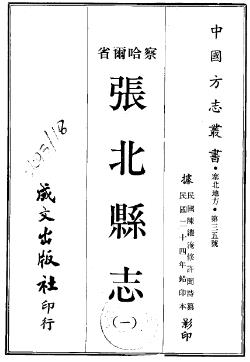 中國方志叢書・塞北地方・第三五號
據民國陳繼淹修許聞詩纂
民國二十四年鉛印本影印
察哈爾省
張北縣志
(一)
成文出版社印行